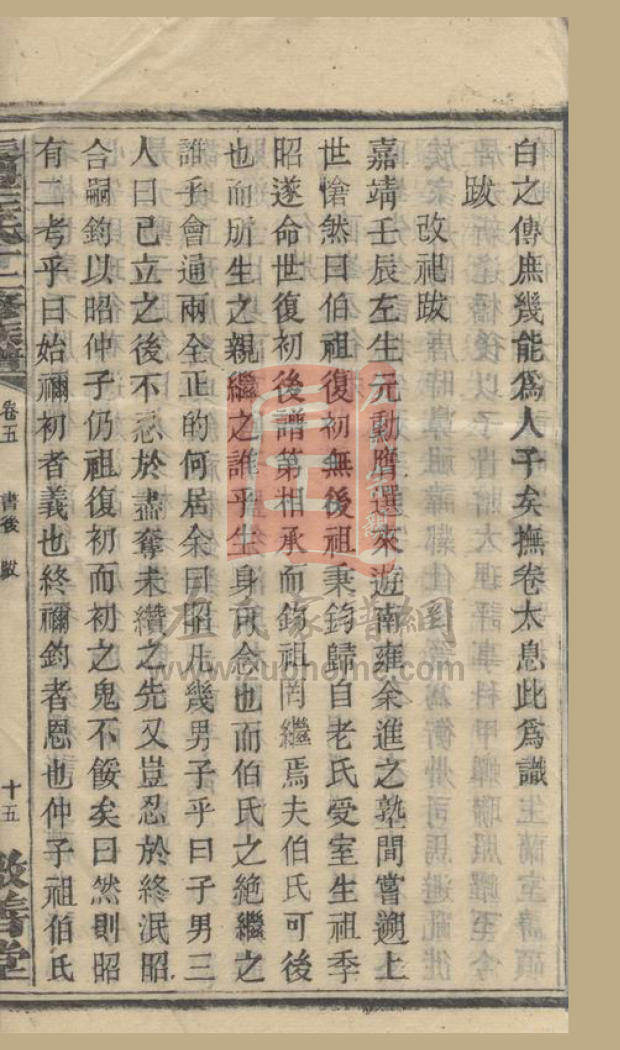 白之傳庶幾能爲人子矣撫卷太息此爲識
跋
改祀跋
嘉靖壬辰左生元勳膺選來遊南雍余進之塾間嘗遡上
世愴然曰伯祖復初無後祖秉鈞歸自老氏受室生祖季
昭遂命世復初後譜第相承而鈞祖罔繼焉夫伯氏可後
也而所生之親繼之誰乎生身可念也而伯氏之絶繼之
誰乎會通兩全正的何居余曰昭凡幾男子乎曰子男三
人曰已立之後不忍於盡奪未纘之先又豈忍於終泯昭
合嗣鈞以昭仲子仍祖復初而初之鬼不餒矣曰然則昭
有二考乎曰始禰初者義也終禰鈞者恩也仲子祖伯氏
卷五
書後 跋
十五
敦善堂
左氏家譜網
www.zuohome.com